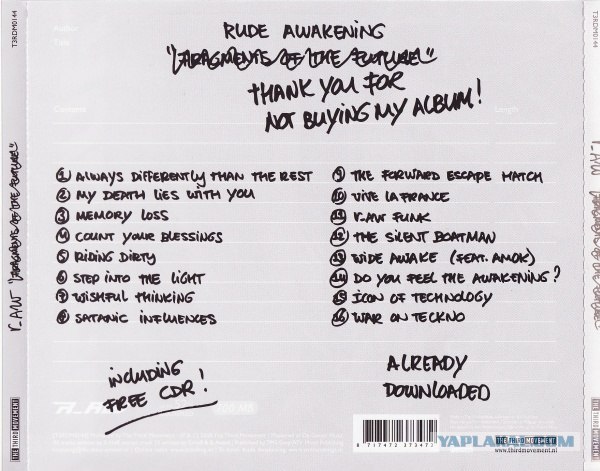 RUDE AWAKENING
"FRAGMENTS OF THE FUTURE"
THANK YOU FOR
NOT BUYING MY ALBUM!
1 ALWAYS DIFFERENTLY THAN THE REST
2 MY DEATH LIES WITH YOU
3 MEMORY LOSS
4 COUNT YOUR BLESSINGS
5 RIDING DIRTY
6 STEP INTO THE LIGHT
7 WISHFUL THINKING
8 SATANIC INFLUENCES
9 THE FORWARD ESCAPE HATCH
10 VIVE LA FRANCE
11 R_AW FUNK
12 THE SILENT BOATMAN
13 WIDE AWAKE (FEAT. AMOK)
14 DO YOU FEEL THE AWAKENING?
15 ICON OF TECHNOLOGY
16 WAR ON TECKNO
INCLUDING
FREE CDR!
ALREADY
DOWNLOADED
700 MB
8 717472 373471
THE THIRD MOVEMENT
www.thirdmovement.nl
T3RDM0144
R_AW "FRAGMENTS OF THE FUTURE"
THE THIRD MOVEMENT
T3RDM0144
R_AW "FRAGMENTS OF THE FUTURE"
THE THIRD MOVEMENT
Title
Length